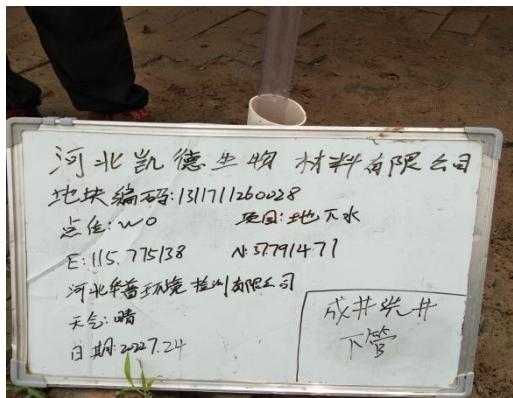 河北凯德生物材料有限公司
地块编码:1311711260028
点位:W0 项目:地下水
E:115.775138 N:37.791471
河北华普环境检测有限公司
天气:晴
日期:2022.7.24
成井洗井
下管